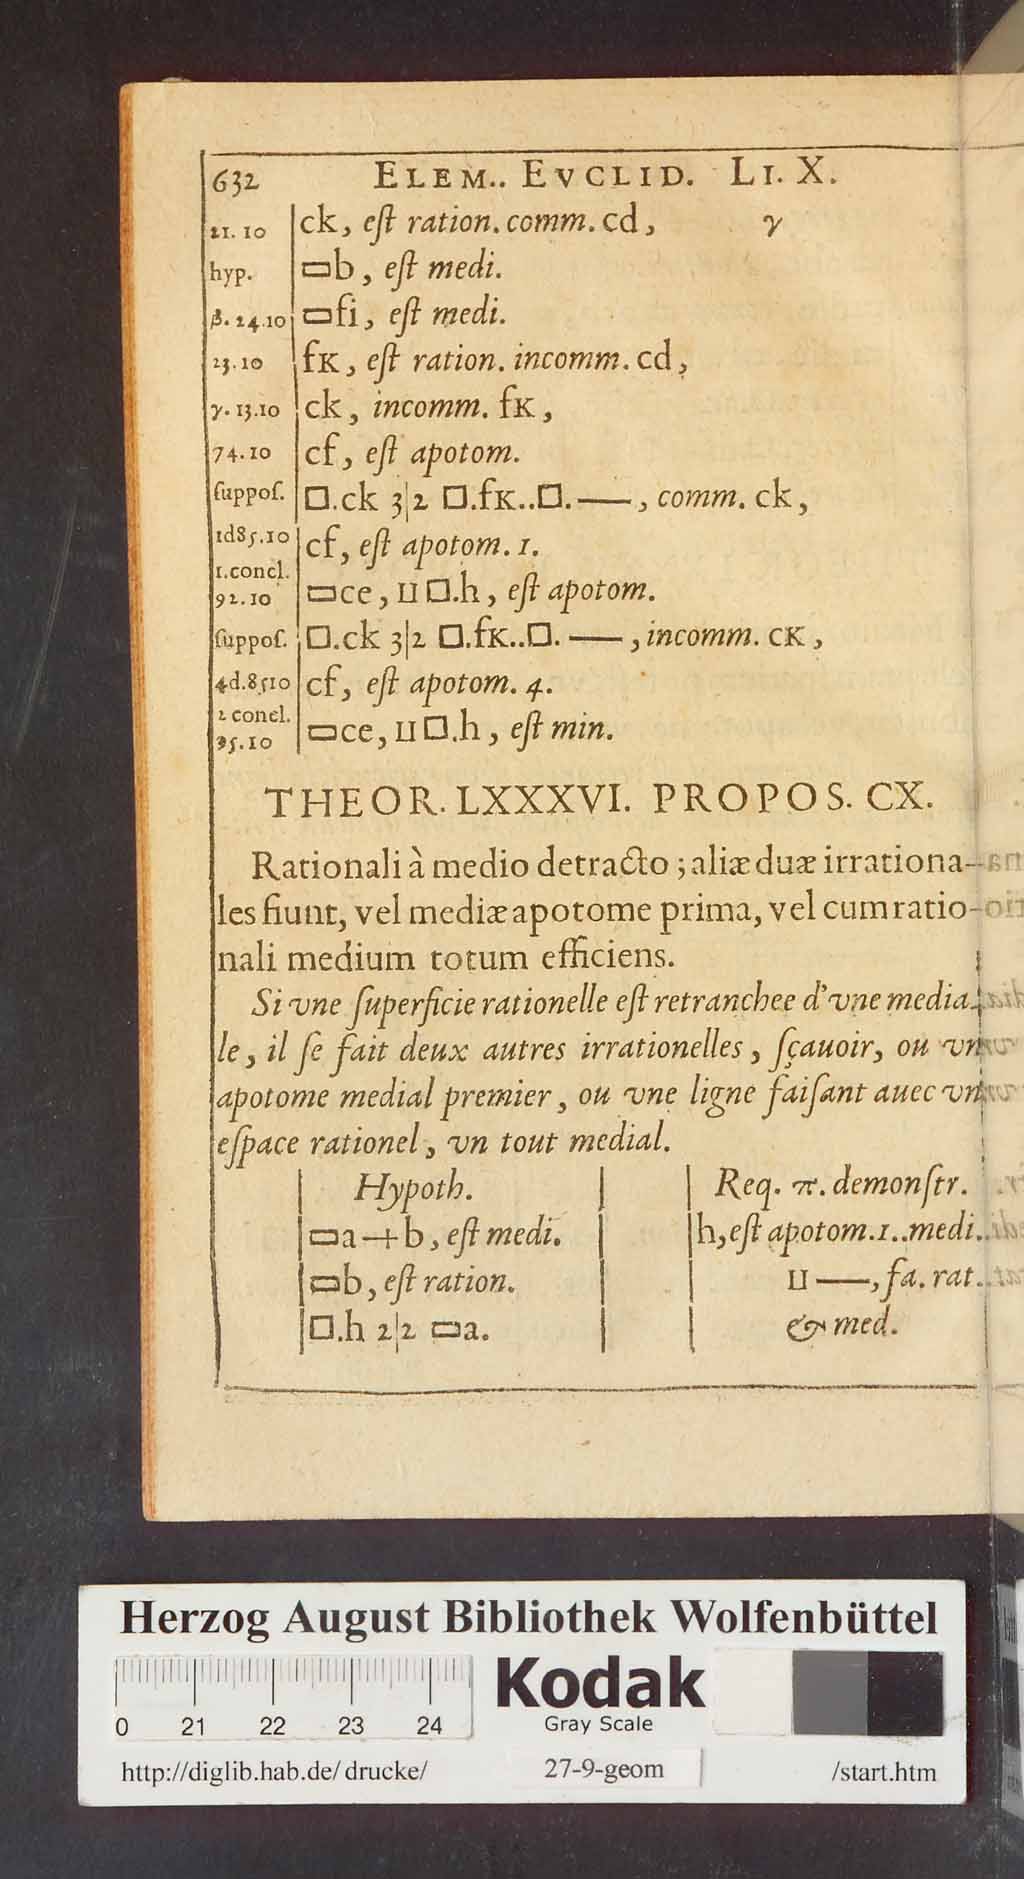 632 ELEM.. EVCLID. LI. X.
21. 10 ck, eſt ration. comm. cd, γ
hyp. ▭b, eſt medi.
β. 24.10 ▭fi, eſt medi.
23.10 fK, eſt ration. incomm. cd,
γ. 13.10 ck, incomm. fK,
74.10 cf, eſt apotom.
ſuppoſ. □.ck 3|2 □.fK..□.——, comm. ck,
1d85.10 cf, eſt apotom. 1.
1.concl.
92.10 ▭ce, ⊔ □.h, eſt apotom.
ſuppoſ. □.ck 3|2 □.fK..□. ——, incomm. cK,
4d.8510 cf, eſt apotom. 4.
2 concl.
95.10 ▭ce, ⊔ □.h, eſt min.
THEOR. LXXXVI. PROPOS. CX.
Rationali à medio detracto; aliæ duæ irrationa-
les fiunt, vel mediæ apotome prima, vel cum ratio-
nali medium totum efficiens.
Si vne ſuperficie rationelle eſt retranchee d'vne media-
le, il ſe fait deux autres irrationelles, ſçauoir, ou vn
apotome medial premier, ou vne ligne faiſant auec vn
eſpace rationel, vn tout medial.
Hypoth. Req. π. demonſtr.
▭a+b, eſt medi. h, eſt apotom.1..medi.
▭b, eſt ration. ⊔ ——, fa. rat.
□.h 2|2 ▭a. & med.
Herzog August Bibliothek Wolfenbüttel
0 21 22 23 24
Kodak
Gray Scale
http://diglib.hab.de/drucke/ 27-9-geom /start.htm